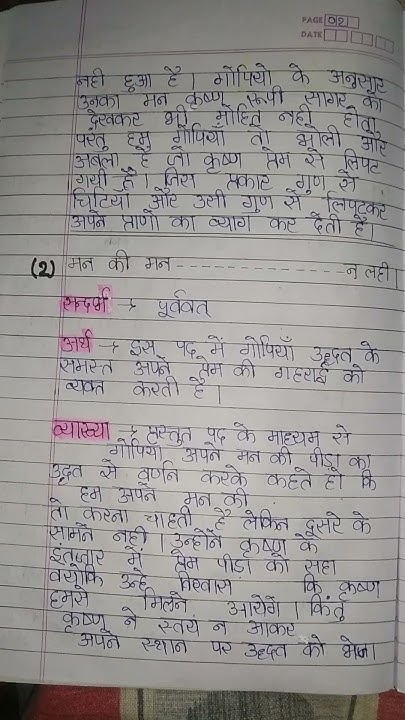 PAGE 02
DATE
नही हुआ है। गोपियों के अनुसार
उनका मन कृष्ण रूपी सागर को
देखकर भी मोहित नही होता
परंतु हम गोपियाँ तो भोली और
अबला है जो कृष्ण प्रेम से लिपट
गयी है। जिस प्रकार गुण से
चिटियाँ और उसी गुण से लिपटकर
अपने प्राणों का त्याग कर देती है।
(2) मन की मन --------------- न लही।
सन्दर्भ → पूर्ववत्
अर्थ → इस पद में गोपियाँ उद्धव के
समस्त अपने प्रेम की गहराई को
व्यक्त करती है।
व्याख्या → प्रस्तुत पद के माध्यम से
गोपियाँ अपने मन की पीड़ा का
उद्धव से वर्णन करके कहते हो कि
हम अपने मन की
तो करना चाहती है लेकिन दूसरे के
सामने नही। उन्होंने कृष्ण के
इंतजार में प्रेम पीड़ा को सहा
क्योंकि उन्हे विश्वास कि कृष्ण
हमसे मिलने आयेगें। किंतु
कृष्ण ने स्वयं न आकर
अपने स्थान पर उद्धव को भेजा